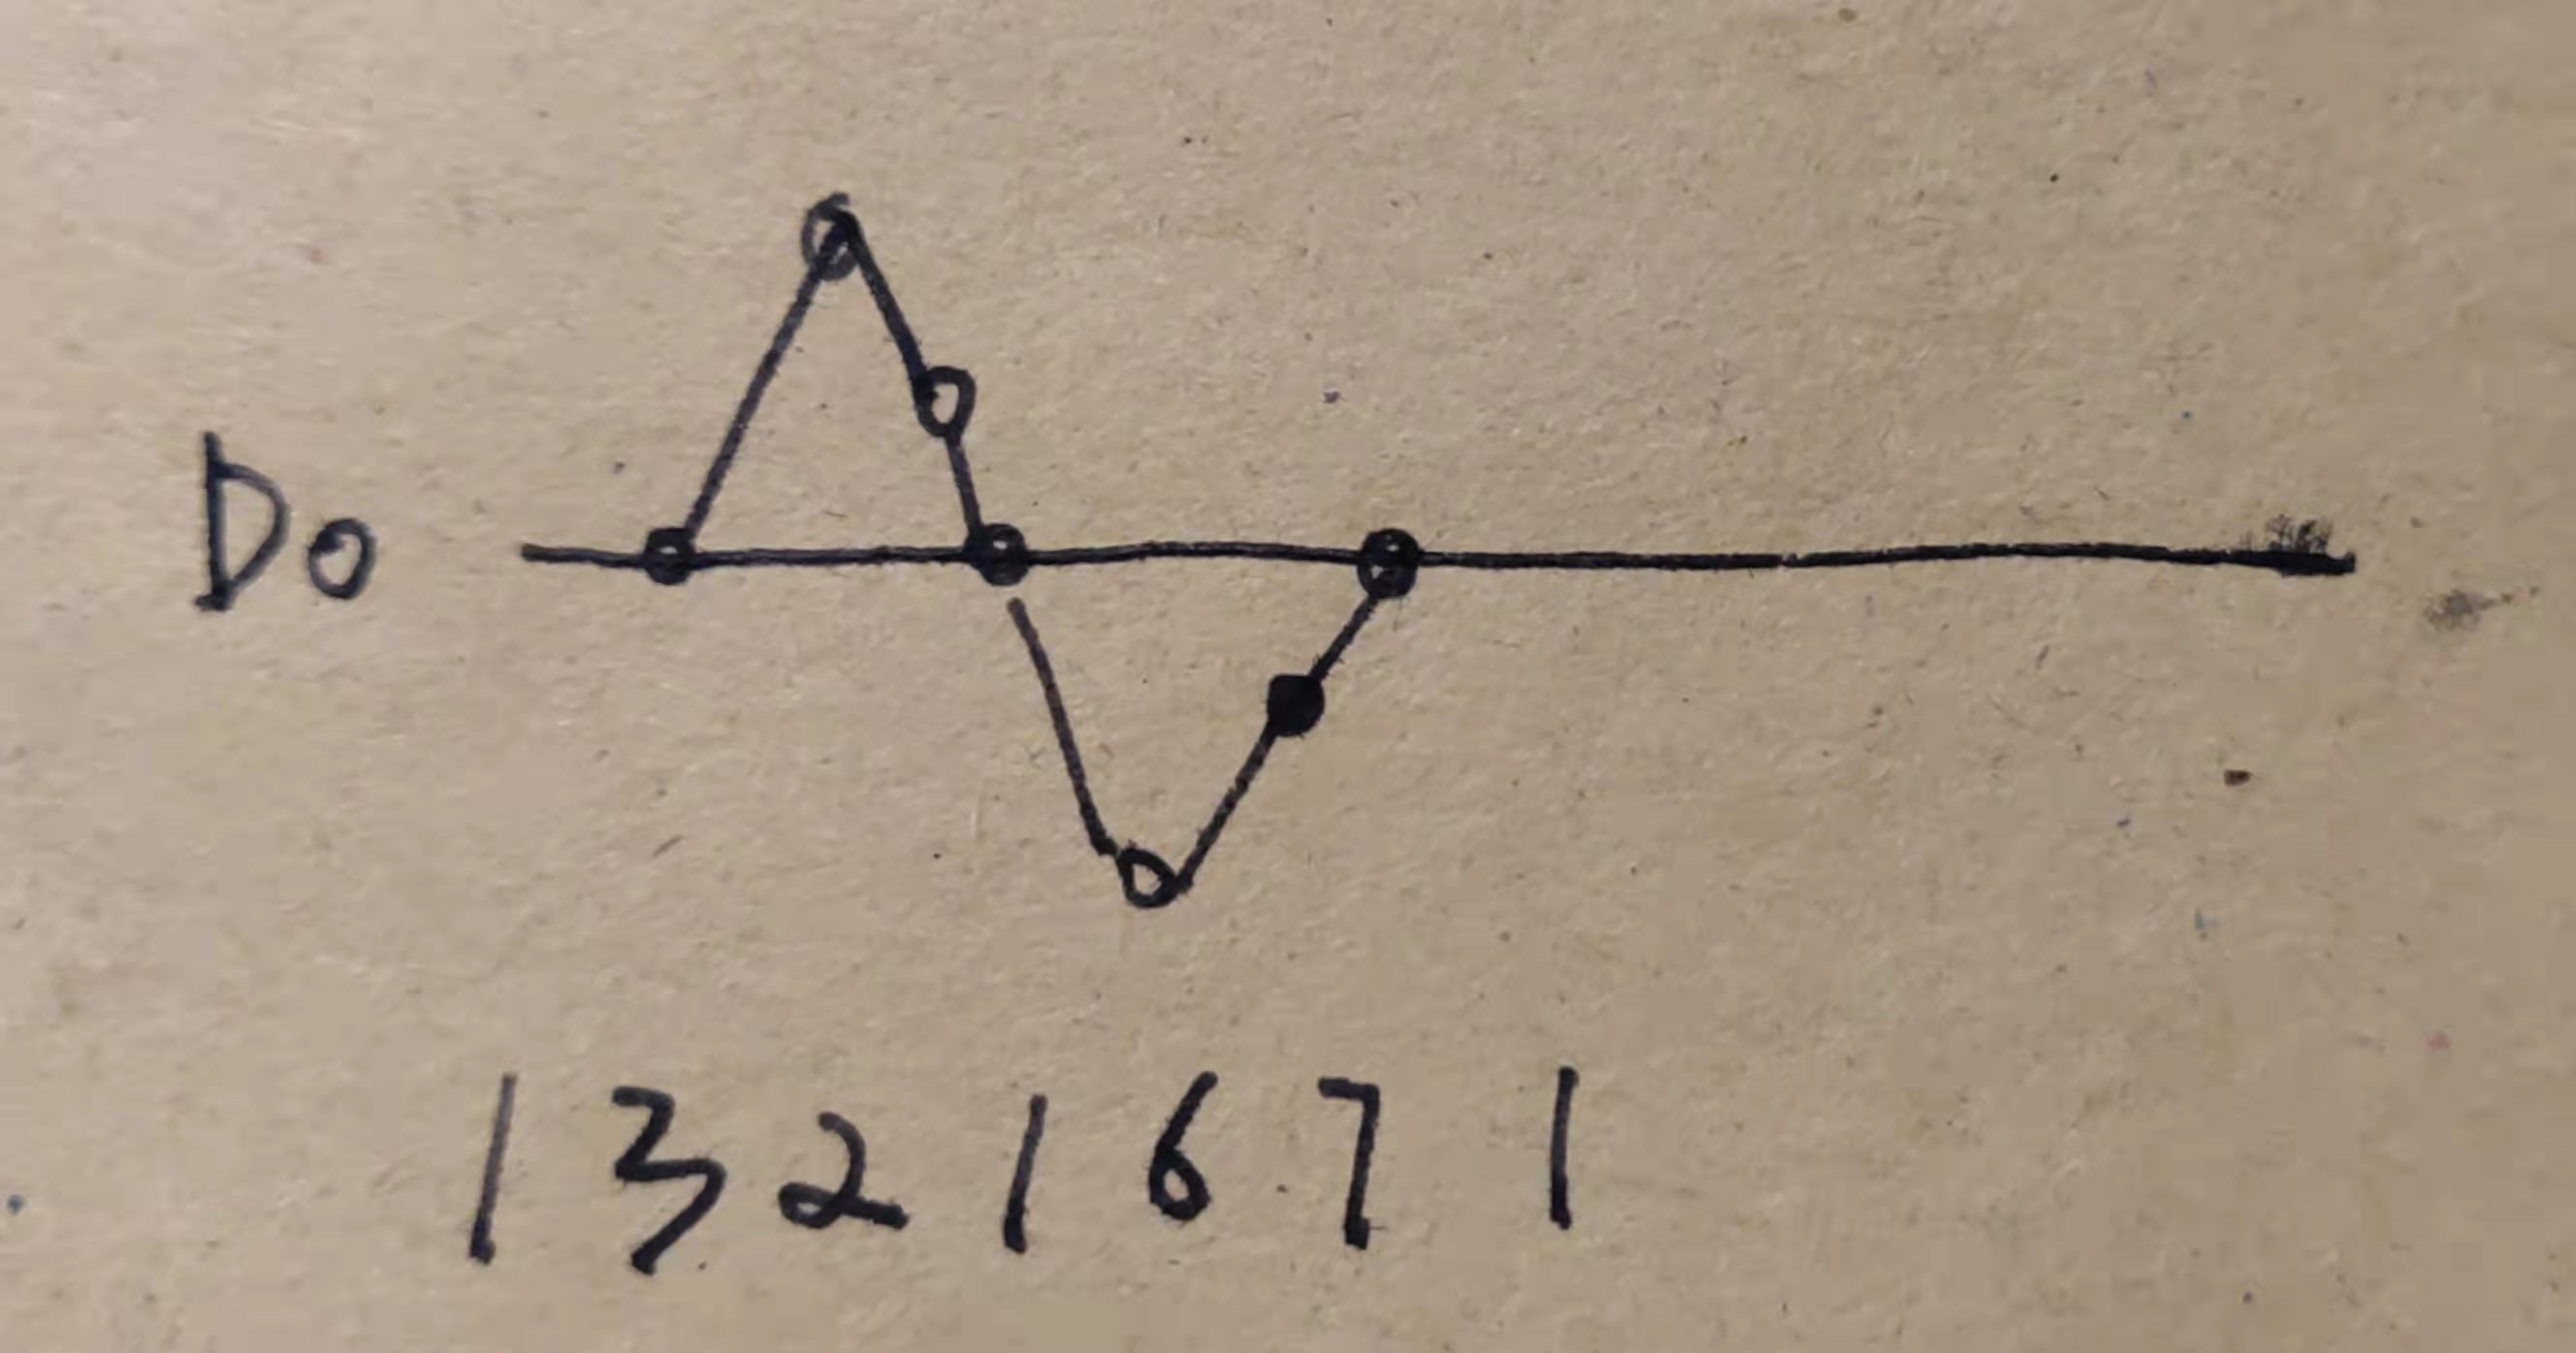 Do
1 3 2 1 6 7 1